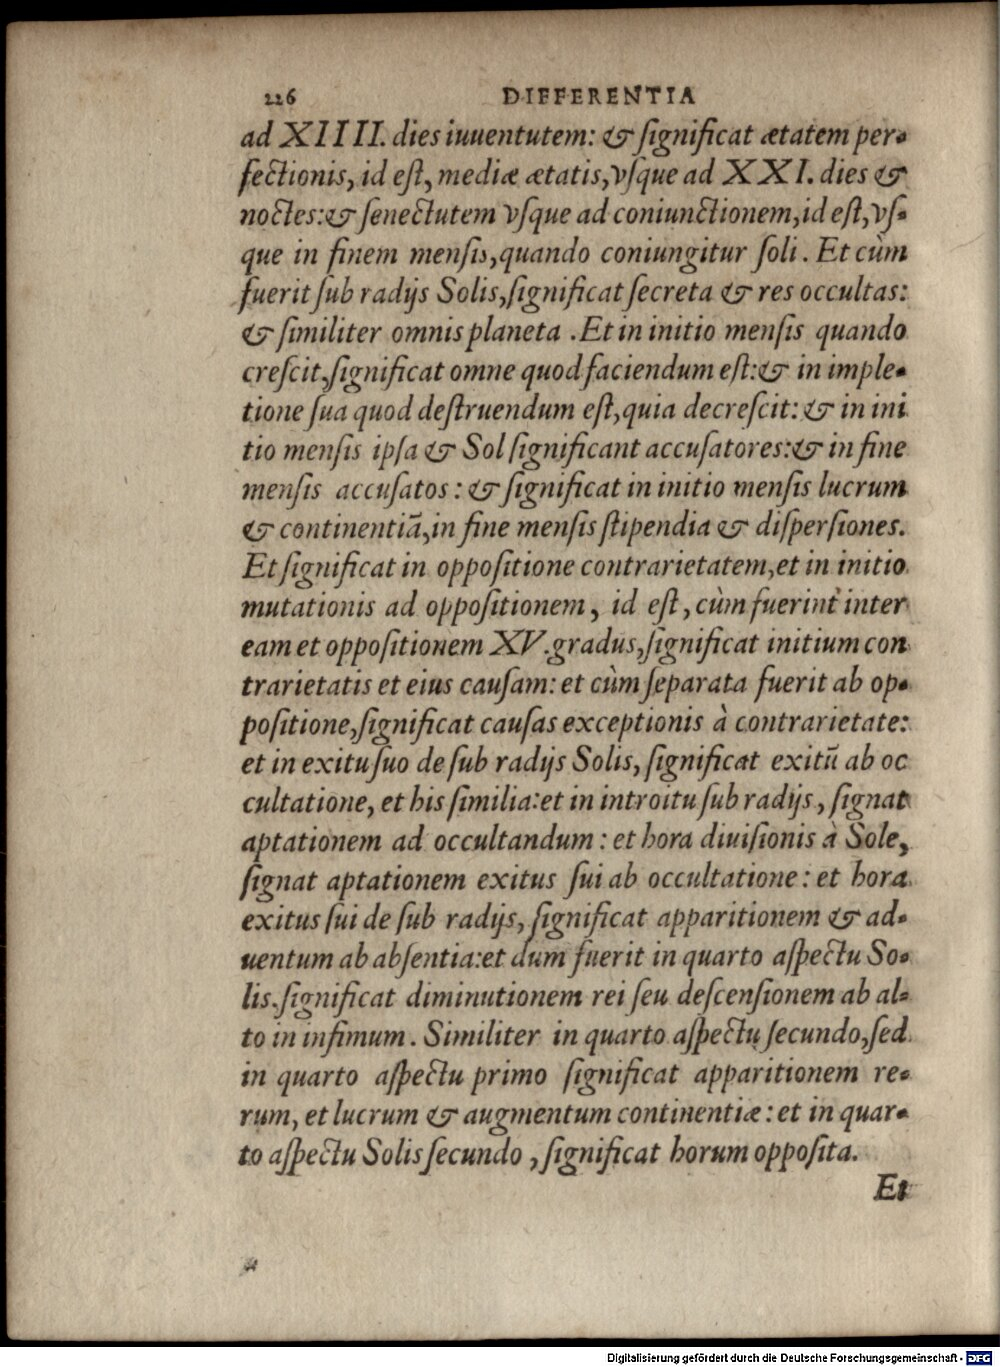 226 DIFFERENTIA
ad XIIII. dies iuuentutem: & ſignificat ætatem per-
fectionis, id eſt, mediæ ætatis, vſque ad XXI. dies &
noctes: & ſenectutem vſque ad coniunctionem, id eſt, vſ-
que in finem menſis, quando coniungitur ſoli. Et cùm
fuerit ſub radijs Solis, ſignificat ſecreta & res occultas:
& ſimiliter omnis planeta. Et in initio menſis quando
creſcit, ſignificat omne quod faciendum eſt: & in imple-
tione ſua quod deſtruendum eſt, quia decreſcit: & in ini
tio menſis ipſa & Sol ſignificant accuſatores: & in fine
menſis accuſatos: & ſignificat in initio menſis lucrum
& continentiã, in fine menſis ſtipendia & diſperſiones.
Et ſignificat in oppoſitione contrarietatem, et in initio
mutationis ad oppoſitionem, id eſt, cùm fuerint inter
eam et oppoſitionem XV. gradus, ſignificat initium con
trarietatis et eius cauſam: et cùm ſeparata fuerit ab op-
poſitione, ſignificat cauſas exceptionis à contrarietate:
et in exitu ſuo de ſub radijs Solis, ſignificat exitũ ab oc
cultatione, et his ſimilia: et in introitu ſub radijs, ſignat
aptationem ad occultandum: et hora diuiſionis à Sole,
ſignat aptationem exitus ſui ab occultatione: et hora
exitus ſui de ſub radijs, ſignificat apparitionem & ad-
uentum ab abſentia: et dum fuerit in quarto aſpectu So-
lis. ſignificat diminutionem rei ſeu deſcenſionem ab al-
to in infimum. Similiter in quarto aſpectu ſecundo, ſed
in quarto aſpectu primo ſignificat apparitionem re-
rum, et lucrum & augmentum continentiæ: et in quar-
to aſpectu Solis ſecundo, ſignificat horum oppoſita.
Et
Digitalisierung gefördert durch die Deutsche Forschungsgemeinschaft - DFG